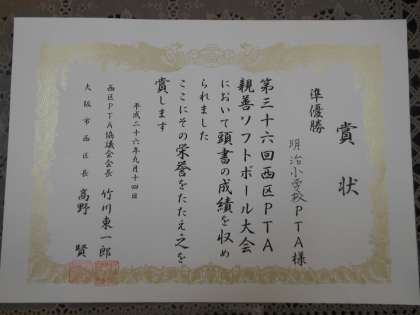 賞状
準優勝
明治小学校PTA様
第三十六回西区PTA
親善ソフトボール大会
において頭書の成績を収め
られました
ここにその栄誉をたたえ之を
賞します
平成二十六年九月十四日
西区PTA協議会会長 竹川東一郎
大阪市西区長 高野 賢